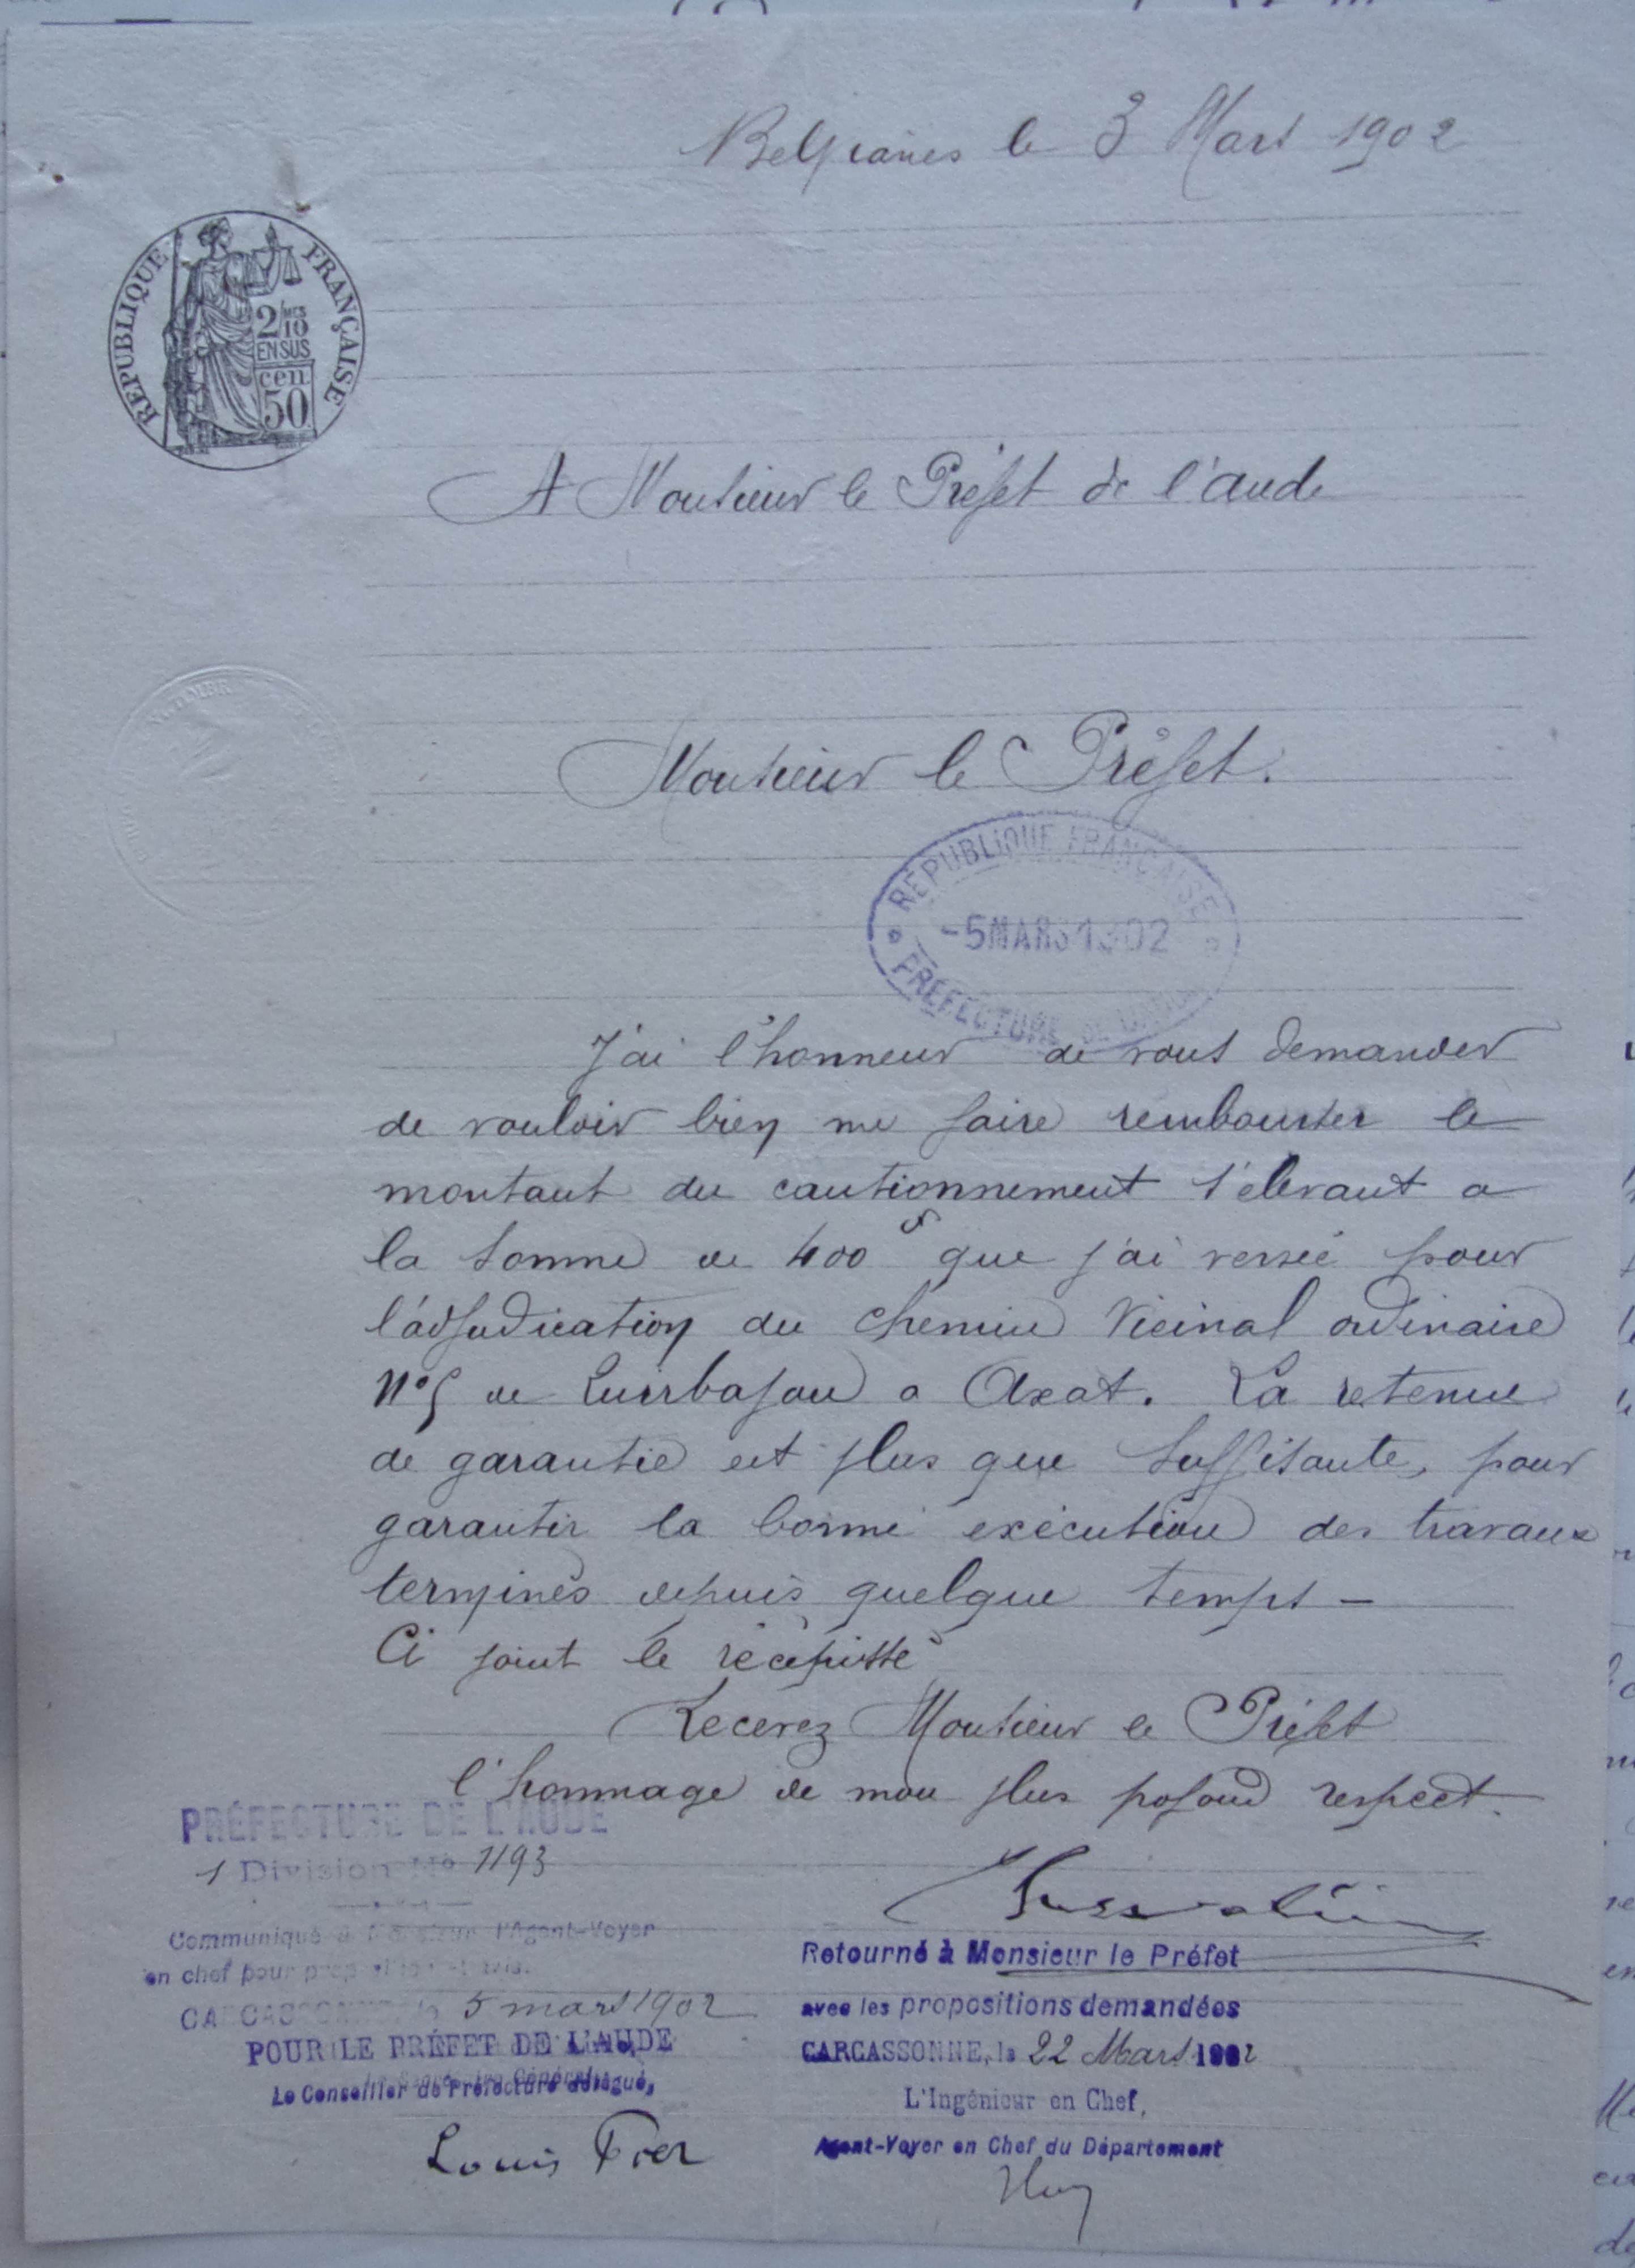 Belvianes le 3 Mars 1902
REPUBLIQUE FRANÇAISE
2/10 MES
EN SUS
cen
50
A Monsieur le Préfet de l'aude
Monsieur le Préfet.
REPUBLIQUE FRANÇAISE
-5 MARS 1902
PREFECTURE DE L'AUDE
J'ai l'honneur de vous demander
de vouloir bien me faire rembourser le
montant du cautionnement s'élevant a
la somme de 400 f que j'ai versée pour
l'adjudication du chemin Vicinal ordinaire
N° 5 de a Axat. La retenue
de garantie est plus que suffisante, pour
garantir la bonne exécution des travaux
terminés depuis quelque temps —
Ci joint le récépissé
Recevez Monsieur le Préfet
l'hommage de mon plus pofond respect.
PRÉFECTURE DE L'AUDE
1 Division No 1193
Communiqué à Monsieur l'Agent-Voyer
en chef pour proposition et avis.
CARCASSONNE, le 5 mars 1902
POUR LE PRÉFET DE L'AUDE
Le Conseiller de Préfecture délégué,
Louis
Retourné à Monsieur le Préfet
avec les propositions demandées
CARCASSONNE, le 22 Mars 1902
L'Ingénieur en Chef,
Agent-Voyer en Chef du Département